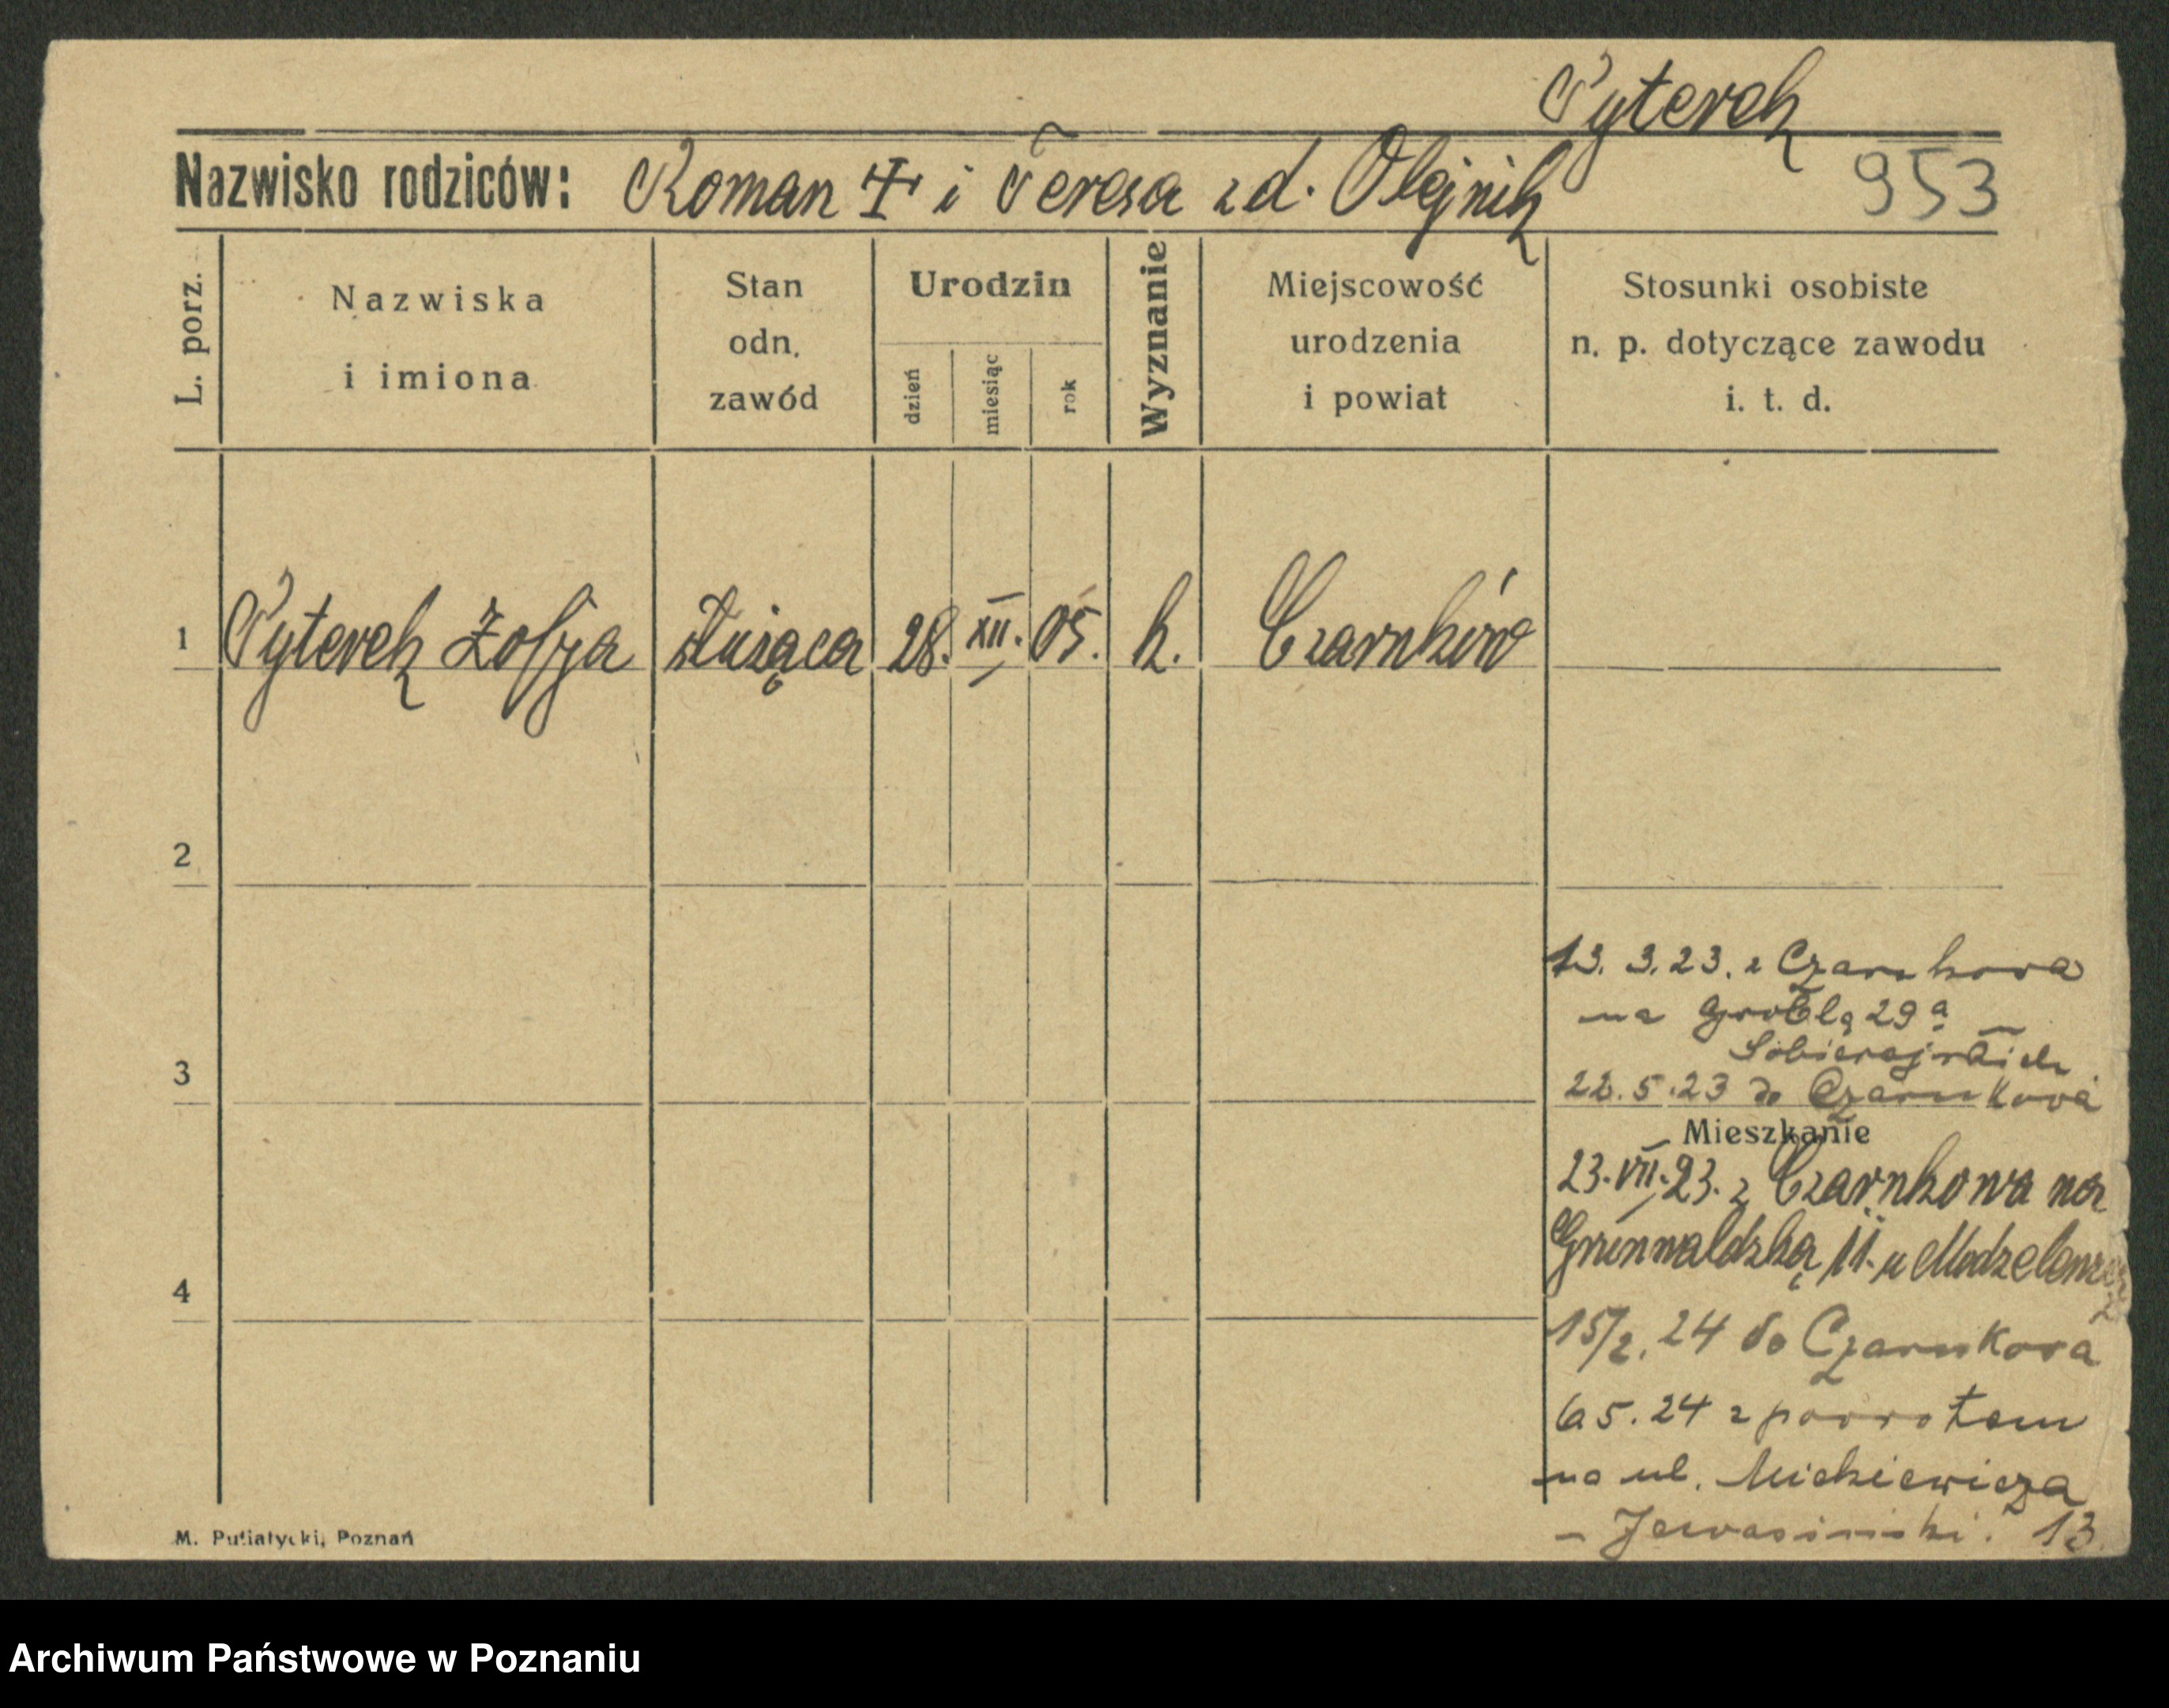 Pyterek
Nazwisko rodziców: Roman ☩ i Teresa z d. Olejnik 953
L. porz.
Nazwiska
i imiona
Stan
odn.
zawód
Urodzin
dzień
miesiąc
rok
Wyznanie
Miejscowość
urodzenia
i powiat
Stosunki osobiste
n. p. dotyczące zawodu
i. t. d.
1 Pyterek Zofja służąca 28. XII. 05. k. Czarnków
2
13. 3. 23. z Czarnkova
na Groblą 29a
Sobierajskich
3
22. 5. 23 do Czarnkova
Mieszkanie
23. VII. 23. z Czarnkowa na
Grunwaldzką 11. u
4
15/2. 24 do Czarnkova
6. 5. 24 z povrotem
na ul. Mickiewicza
13
M. Putiatycki, Poznań
Archiwum Państwowe w Poznaniu